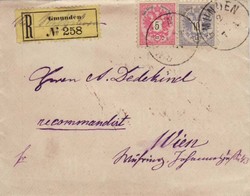 Gmunden
R № 258
5
GMUNDEN
Herrn A. Dedekind
recommandirt
Wien
Währing